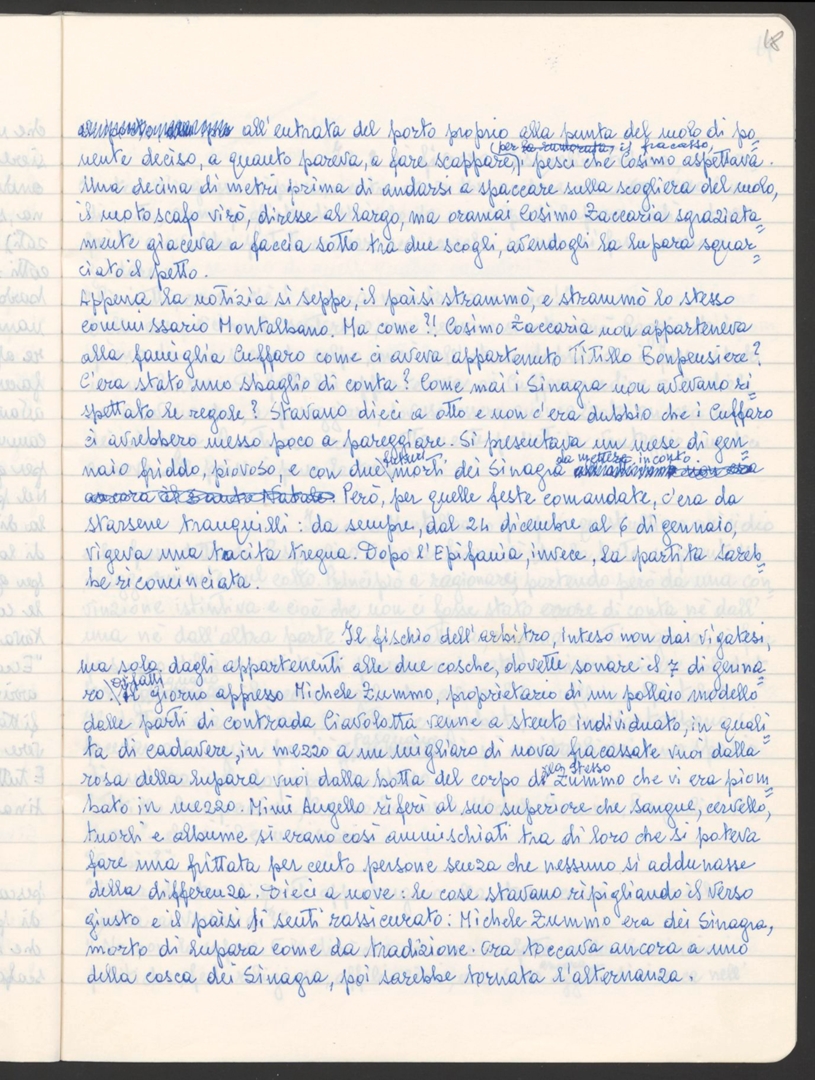 18
all'entrata del porto proprio alla punta del molo di po=
(per il fracasso,)
nente deciso, a quanto pareva, a fare scappare, i pesci che Cosimo aspettava.
Una decina di metri prima di andarsi a spaccare sulla scogliera del molo,
il motoscafo virò, diresse al largo, ma oramai Cosimo Zaccaria sgraziata=
mente giaceva a faccia sotto tra due scogli, avendogli la lupara squar=
ciato il petto.
Appena la notizia si seppe, il paìsi strammò, e strammò lo stesso
commissario Montalbano. Ma come?!! Cosimo Zaccaria non apparteneva
alla famiglia Cuffaro come ci aveva appartenuto Titillo Bonpensiere?
C'era stato uno sbaglio di conta? Come mai i Sinagra non avevano ri=
spettato le regole? Stavano dieci a otto e non c'era dubbio che i Cuffaro
ci avrebbero messo poco a pareggiare. Si presentava un mese di gen=
futuri da mettere in conto.
naio friddo, piovoso, e con due morti dei Sinagra
ancora il Santo Natale Però, per quelle feste comandate, c'era da
starsene tranquilli: da sempre, dal 24 dicembre al 6 di gennaio,
vigeva una tacita tregua. Dopo l'Epifania, invece, la partita sareb=
be ricominciata.
Il fischio dell'arbitro, inteso non dai vigatesi,
ma solo dagli appartenenti alle due cosche, dovette sonare il 7 di genna=
Difatti
ro. il giorno appresso Michele Zummo, proprietario di un pollaio modello
dalle parti di contrada Ciavolotta venne a stento individuato, in quali=
tà di cadavere, in mezzo a un migliaro di nova fracassate vuoi dalla
rosa della lupara vuoi dalla botta del corpo dello stesso Zummo che vi era piom=
bato in mezzo. Mimì Augello riferì al suo superiore che sangue, cervello,
tuorli e albume si erano così ammischiati tra di loro che si poteva
fare una frittata per cento persone senza che nessuno si addunasse
della differenza. Dieci a nove: le cose stavano ripigliando il verso
giusto e il paìsi si sentì rassicurato: Michele Zummo era dei Sinagra,
morto di lupara come da tradizione. Ora toccava ancora a uno
della cosca dei Sinagra, poi sarebbe tornata l'alternanza.